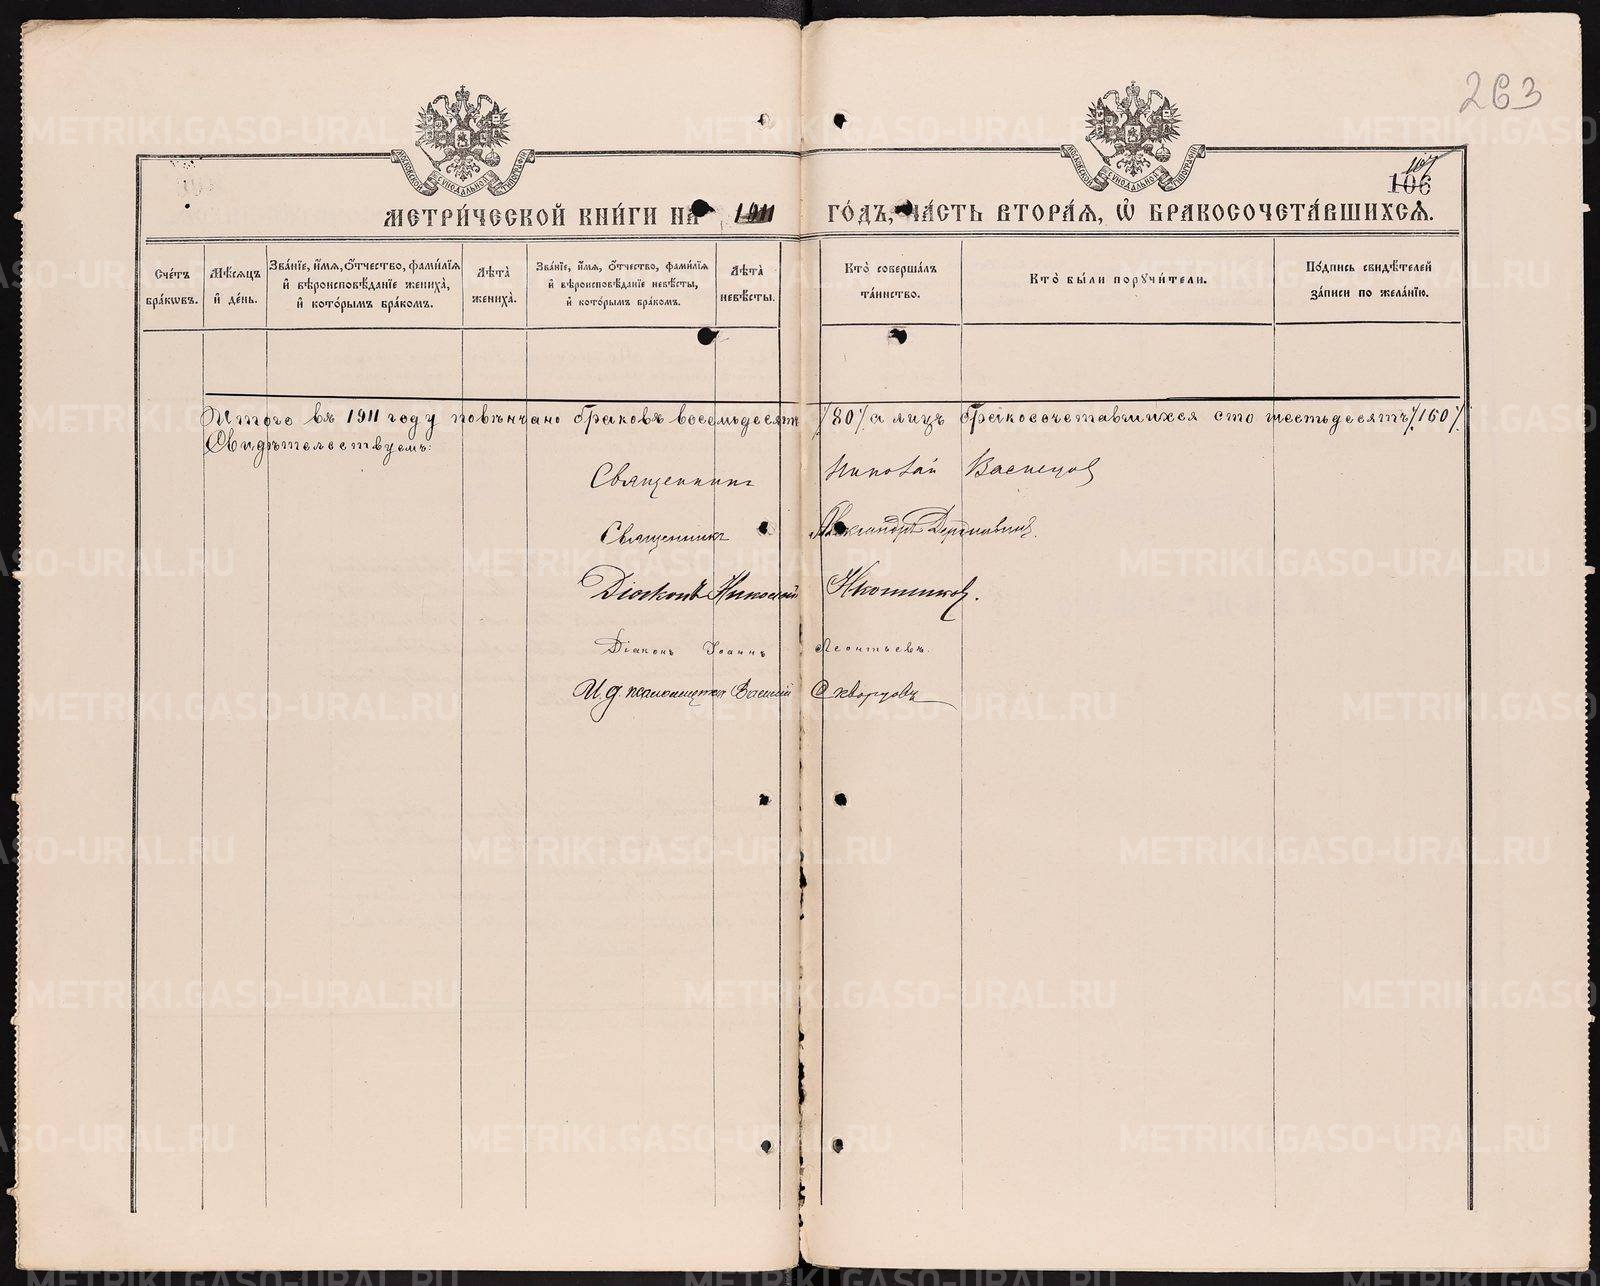 263
107
106
МЕТРИ́ЧЕСКОЙ КНИ́ГИ НА 1911 ГО́ДЪ, ЧА́СТЬ ВТОРА́Я, Ѡ БРАКОСОЧЕТА́ВШИХСЯ.
Сче́тъ бра́кѡвъ.
Мѣ́сяцъ и де́нь.
Зва́нїе, и́мя, ѻ́тчество, фами́лїя и вѣроисповѣ́данїе жениха̀, и кото́рымъ бра́комъ.
Лѣ́та жениха̀.
Зва́нїе, и́мя, ѻ́тчество, фами́лїя и вѣроисповѣ́данїе невѣ́сты, и кото́рымъ бра́комъ.
Лѣ́та невѣ́сты.
Кто̀ соверша́лъ та́инство.
Кто̀ бы́ли порꙋчи́тели.
По́дпись свидѣ́телей за́писи по жела́нїю.
Итого въ 1911 году повѣнчано браковъ восемьдесятъ /80/ а лицъ бракосочетавшихся сто шестьдесятъ /160/.
Свидѣтельствуемъ:
Священникъ Николай Васнецов
Священникъ Александръ
Діаконъ Николай
Діаконъ Іоаннъ Леонтьевъ.
И. д. псаломщика Василій Скворцовъ
METRIKI.GASO-URAL.RU